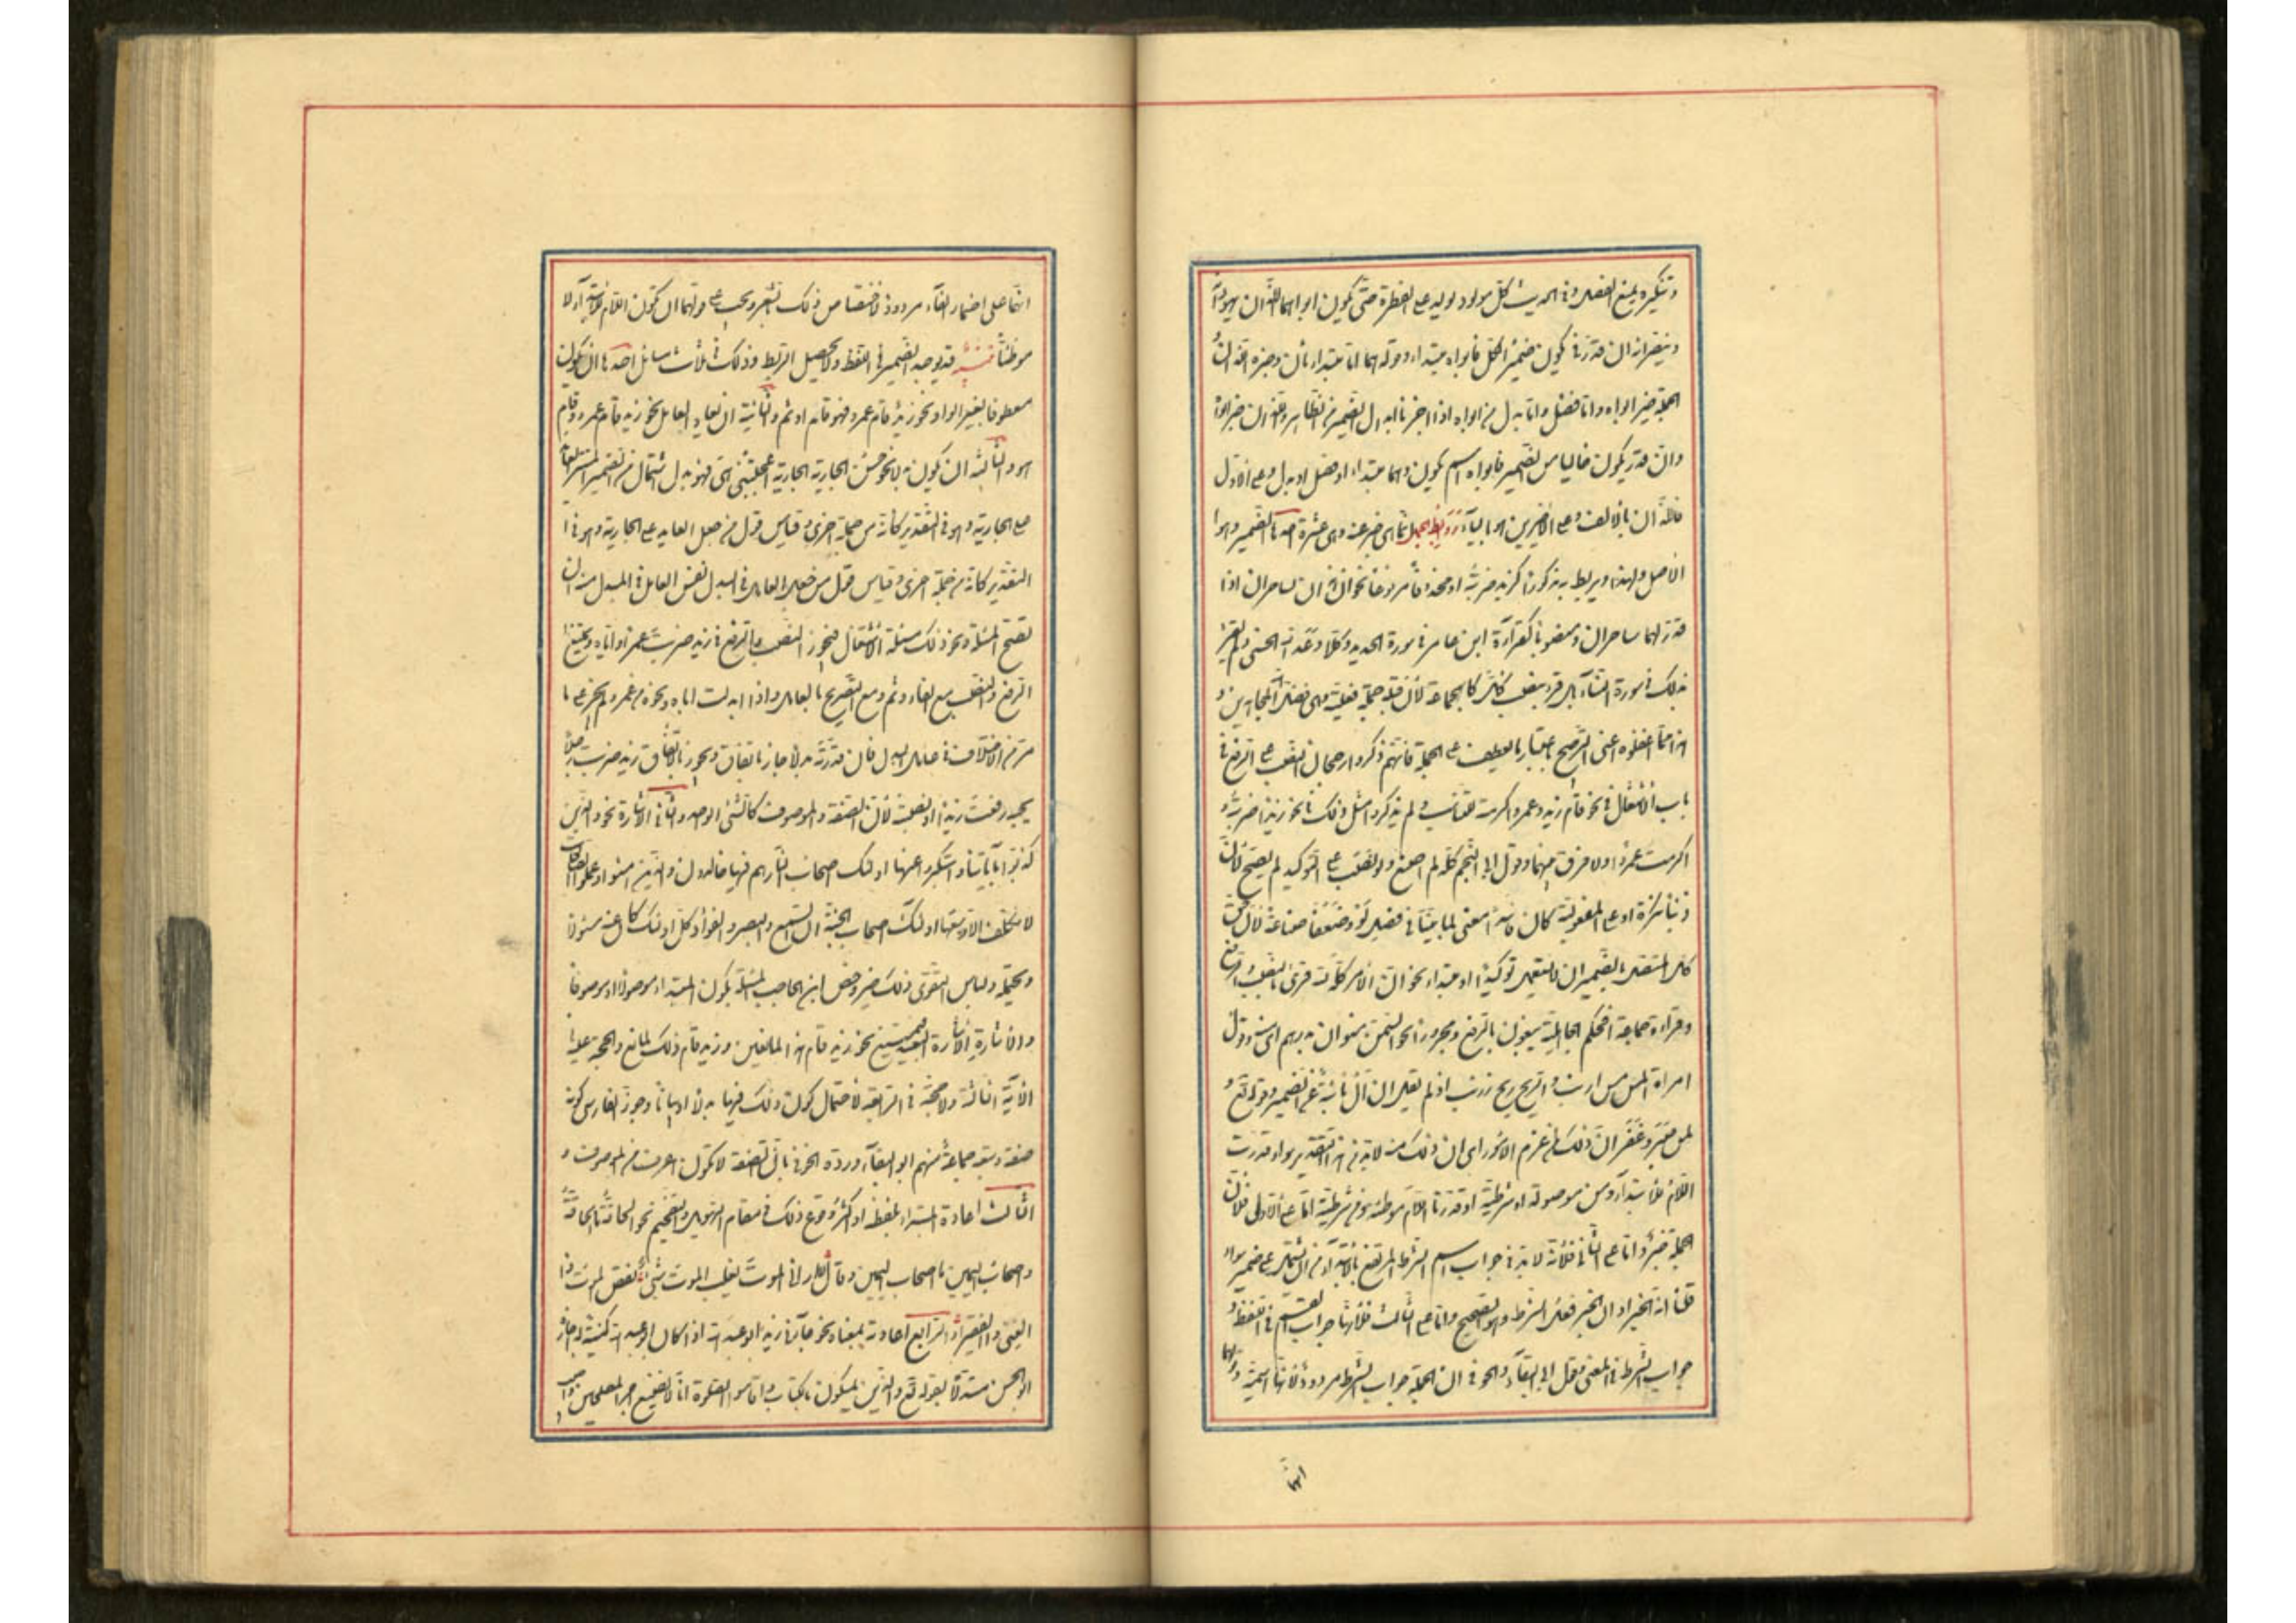 وتنكيره يمنع الفصل وفى الحديث كل مولود يولد على الفطرة حتى يكون ابواه هما اللذان يهودانه
وينصرانه ان قدر فى يكون ضمير الكل فابواه مبتداء وقوله هما اما مبتداء ثان وخبره اللذان
الجملة خبر ابواه واما فصل واما بدل من ابواه اذا اجزنا ابدال الضمير من الظاهر واللذان خبر ابواه
وان قدر يكون خاليا من الضمير فابواه اسم يكون وهما مبتداء او فصل او بدل وعلى الاول
فاللذان بالالف وعلى الاخيرين هو بالياء روابط الجمل بما هى خبر عنه وهى عشرة احدها الضمير وهو ا
الاصل ولهذا يربط به مذكورا كزيد ضربته او محذوفا مرفوعا نحو ان هذان لساحران اذا
قدر لهما ساحران ومنصوبا كقراءة ابن عامر فى سورة الحديد وكلا وعد الله الحسنى ولم يقرء
بذلك فى سورة النساء بل قرء بنصب كل كالجماعة لان قبله جملة فعلية وهى فضل الله المجاهدين و
هذا مما اغفلوه اعنى الترجيح باعتبار ما يعطف على الجملة فانهم ذكروا رجحان النصب على الرفع فى
باب الاشتغال فى نحو قام زيد وعمروا اكرمته للتناسب ولم يذكروا مثل ذلك فى نحو زيد اضربته و
اكرمت عمروا ولا فرق بينهما وقول ابى النجم كله لم اصنع ولو نصب كل على التوكيد لم يصح لان
ذنبا نكرة او على المفعولية كان فاسدا معنى لما بينا فى فصل كل وضعيفا صناعة لان حق
كل المتصلة بالضمير ان لا تستعمل الا توكيدا او مبتداء نحو ان الامر كله لله قرئ بالنصب والرفع
وقراءة جماعة افحكم الجاهلية يبغون بالرفع ومجرورا نحو السمن منوان بدرهم اى منه وقول
امراة المس مس ارنب والريح ريح زرنب اذا لم يقل ان ال نائبة عن الضمير وقوله تع و
لمن صبر وغفر ان ذلك لمن عزم الامور اى ان ذلك منه لا بد من هذا التقدير سواء قدرت
اللام للابتداء ومن موصولة او شرطية او قدرنا اللام موطئة ومن شرطية اما على الاول فلان
الجملة خبر واما على الثانى فلانه لا بد فى جواب اسم الشرط المرتفع بالابتداء من ان يشتمل على ضمير سواء
قلنا انه الخبر او ان الخبر فعل الشرط وهو الصحيح واما على الثالث فلانها جواب القسم فى اللفظ و
جواب الشرط فى المعنى وقول ابى البقاء والحوفى ان الجملة جواب الشرط مردود لانها اسمية وقولهما
انها
انها على اضمار الفاء مردود لاختصاص ذلك بالشعر ويجب على قولهما ان تكون اللام للابتداء لا
موطئا تنبيه قد يوجد الضمير فى اللفظ ولا يحصل الربط وذلك فى ثلاث مسائل احدها ان يكون
معطوفا بغير الواو نحو زيد قام عمرو فهو قام او ثم والثانية ان يعاد العامل نحو زيد قام عمرو وقام
هو والثالثة ان يكون بدلا نحو حسن الجارية الجارية اعجبتنى هى فهو بدل اشتمال من الضمير المستتر العائد
على الجارية وهو فى التقدير كانه من جملة اخرى وقياس قول من جعل العايد على الجارية وهو فى ا
التقدير كانه من جملة اخرى وقياس قول من جعل العامل فى البدل نفس العامل فى المبدل منه ان
تصح المسئلة ونحو ذلك مسئلة الاشتغال فيجوز النصب والرفع فى زيد ضربت عمروا واباه ويمتنع ا
الرفع والنصب مع الفاء وثم ومع التصريح بالعامل واذا ابدلت اباه ونحوه من عمرو لم يجز على ما
مر من الاختلاف فى عامل البدل فان قدرته بيانا جاز باتفاق ويجوز بالاتفاق زيد ضربت رجلا
يحبه رفعت زيدا او نصبته لان الصفة والموصوف كالشئ الواحد والثانى الاشارة نحو والذين
كذبوا باياتنا واستكبروا عنها اولئك اصحاب النار هم فيها خالدون والذين امنوا وعملوا الصالحات
لا نكلف الا وسعها اولئك اصحاب الجنة ان السمع والبصر والفؤاد كل اولئك كان عنه مسئولا
ويحتمله ولباس التقوى ذلك خير وخص ابن الحاجب المسئلة بكون المبتداء موصولا او موصوفا
والاشارة اشارة البعيد فيمتنع نحو زيد قام هذا المانعين وزيد قام ذلك لمانع والحجة عليه
الآية الثالثة ولا حجة فى الرابعة لاحتمال كون ذلك فيها بدلا او بيانا وجوز الفارسى كونه
صفة وتبعه جماعة منهم ابو البقاء ورده الحوفى بان الصفة لا تكون اعرف من الموصوف و
الثالث اعادة المبتداء بلفظه واكثر وقوع ذلك فى مقام التهويل والتفخيم نحو الحاقة ما الحاقة
واصحاب اليمين ما اصحاب اليمين وقال لا ارى الموت يسبق الموت شئ نغص الموت ذا
الغنى والفقيرا والرابع اعادته بمعناه نحو جائنى زيد ابو عبد الله اذا كان ابو عبد الله كنية له اجازه
ابو الحسن مستدلا بقوله تع والذين يمسكون بالكتاب واقاموا الصلوة انا لا نضيع اجر المصلحين واجيب